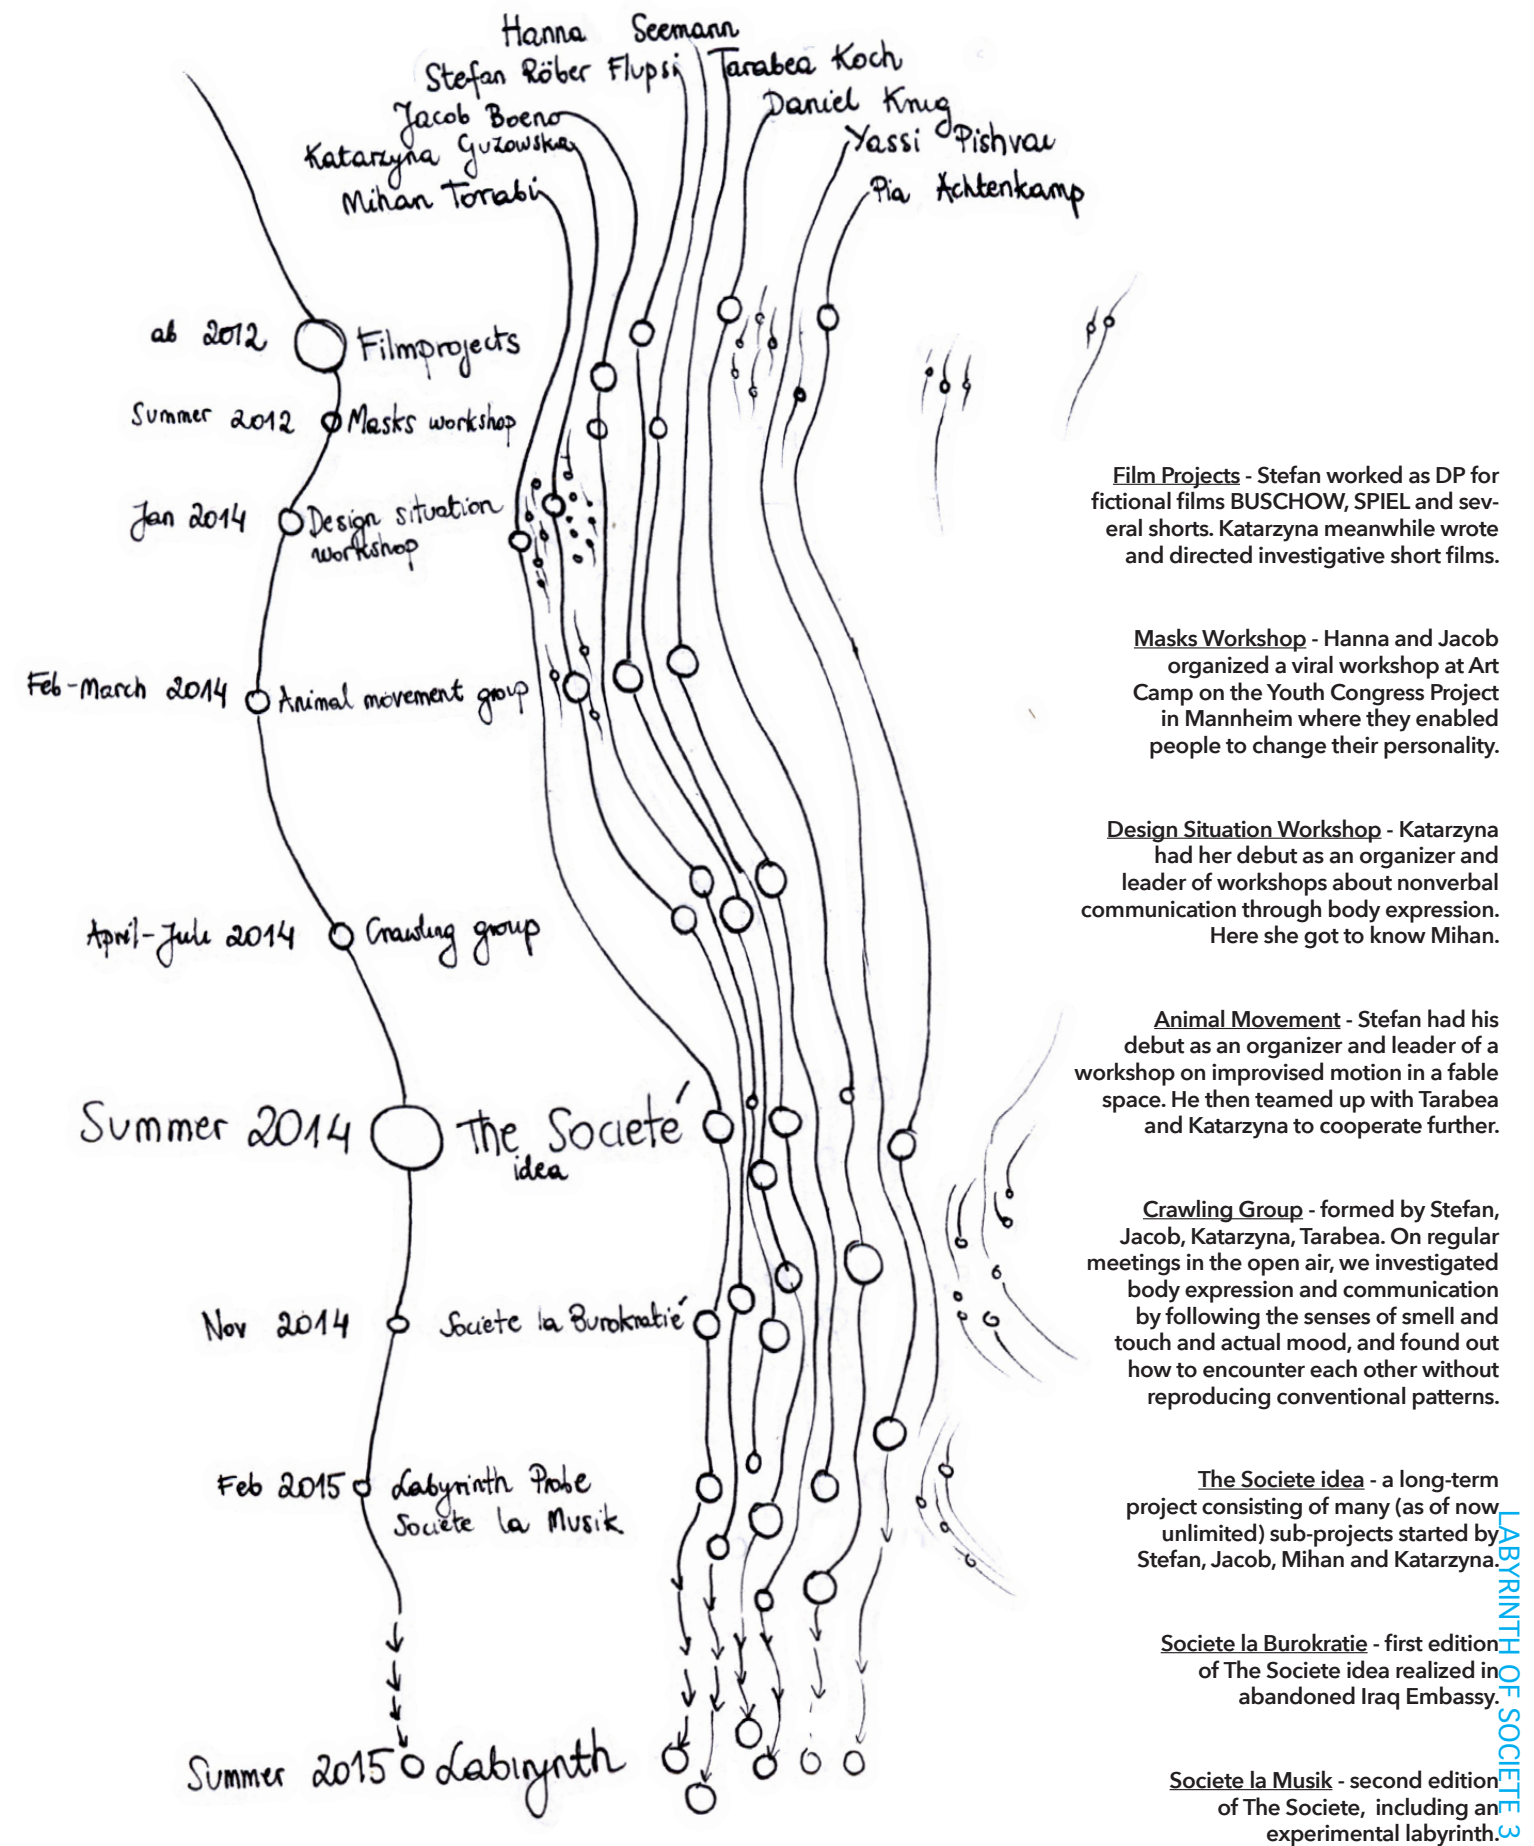 Hanna Seemann
Stefan Röber Flupsi
Tarabea Koch
Jacob Boeno
Daniel Krug
Katarzyna Guzowska
Yassi Pishvai
Mihan Torabi
Pia Achtenkamp
ab 2012 Filmprojects
Summer 2012 Masks workshop
Jan 2014 Design situation
workshop
Feb-March 2014 Animal movement group
April-Juli 2014 Crawling group
Summer 2014 The Societé
idea
Nov 2014 Societe la Burokratié
Feb 2015 Labyrinth Probe
Societe la Musik
Summer 2015 Labirynth
Film Projects - Stefan worked as DP for
fictional films BUSCHOW, SPIEL and sev-
eral shorts. Katarzyna meanwhile wrote
and directed investigative short films.
Masks Workshop - Hanna and Jacob
organized a viral workshop at Art
Camp on the Youth Congress Project
in Mannheim where they enabled
people to change their personality.
Design Situation Workshop - Katarzyna
had her debut as an organizer and
leader of workshops about nonverbal
communication through body expression.
Here she got to know Mihan.
Animal Movement - Stefan had his
debut as an organizer and leader of a
workshop on improvised motion in a fable
space. He then teamed up with Tarabea
and Katarzyna to cooperate further.
Crawling Group - formed by Stefan,
Jacob, Katarzyna, Tarabea. On regular
meetings in the open air, we investigated
body expression and communication
by following the senses of smell and
touch and actual mood, and found out
how to encounter each other without
reproducing conventional patterns.
The Societe idea - a long-term
project consisting of many (as of now
unlimited) sub-projects started by
Stefan, Jacob, Mihan and Katarzyna.
Societe la Burokratie - first edition
of The Societe idea realized in
abandoned Iraq Embassy.
Societe la Musik - second edition
of The Societe, including an
experimental labyrinth.
LABYRINTH OF SOCIETE 3